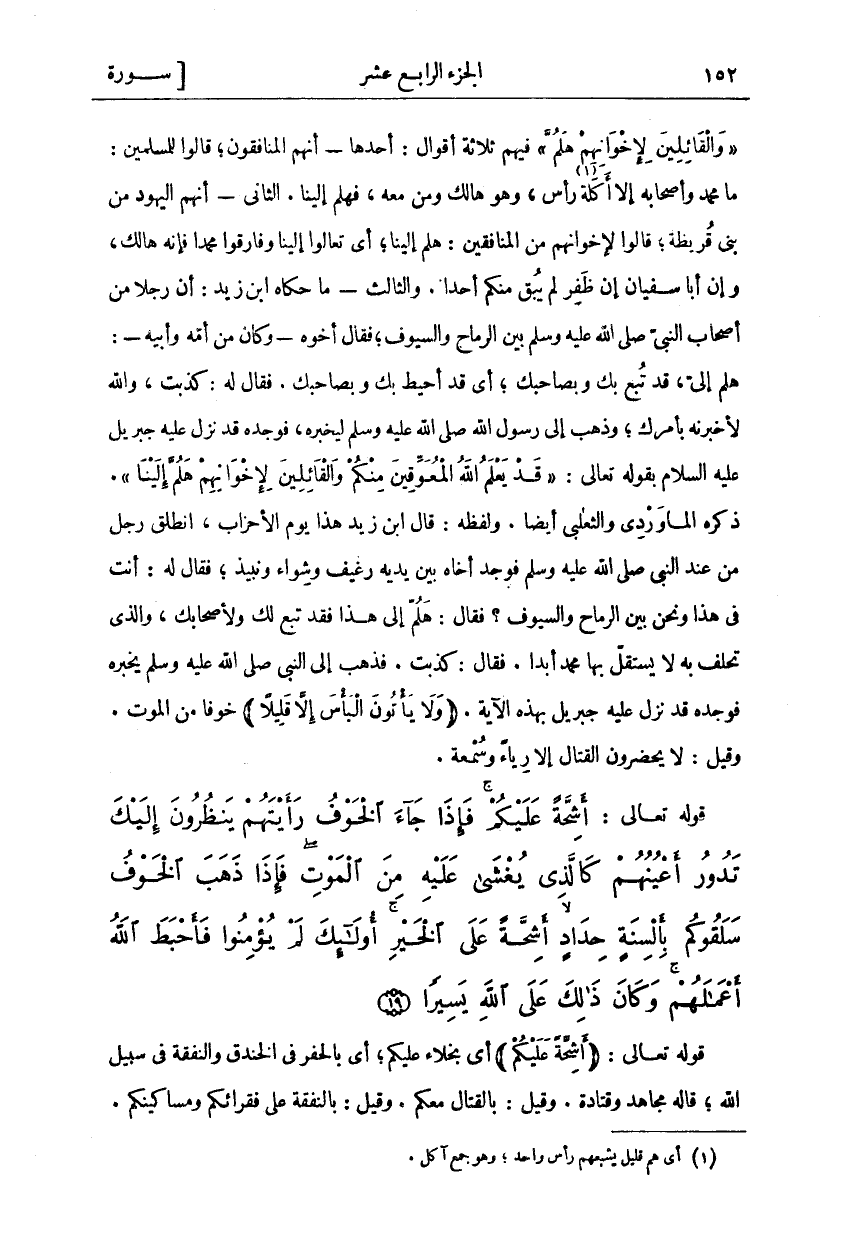 ١٥٢ الجزء الرابع عشر [ ســورة
« وَالْقَائِلِينَ لِإِخْوَانِهِمْ هَلُمَّ » فيهم ثلاثة أقوال : أحدها — أنهم المنافقون؛ قالوا للمسلمين :
ما محمد وأصحابه إلا أَكَلَة(١) رأس ، وهو هالك ومن معه ، فهلم إلينا . الثانى — أنهم اليهود من
بنى قُريظة ؛ قالوا لإخوانهم من المنافقين : هلم إلينا؛ أى تعالوا إلينا وفارقوا محمدا فإنه هالك ،
وإن أبا ســفيان إن ظَفِر لم يُبق منكم أحدا . والثالث — ما حكاه ابن زيد : أن رجلا من
أصحاب النبىّ صلى الله عليه وسلم بين الرماح والسيوف؛ فقال أخوه — وكان من أمّه وأبيه — :
هلم إلىّ ، قد تُبع بك وبصاحبك ؛ أى قد أحيط بك وبصاحبك . فقال له : كذبت ، والله
لأخبرنه بأمرك ؛ وذهب إلى رسول الله صلى الله عليه وسلم ليخبره، فوجده قد نزل عليه جبريل
عليه السلام بقوله تعالى : « قَــدْ يَعْلَمُ اللَّهُ الْمُعَوِّقِينَ مِنْكُمْ وَالْقَائِلِينَ لِإِخْوَانِهِمْ هَلُمَّ إِلَيْنَا » .
ذكره المــاوَرْدِى والثعلبى أيضا . ولفظه : قال ابن زيد هذا يوم الأحزاب ، انطلق رجل
من عند النبى صلى الله عليه وسلم فوجد أخاه بين يديه رغيف وشواء ونبيذ ؛ فقال له : أنت
فى هذا ونحن بين الرماح والسيوف ؟ فقال : هَلُمّ إلى هــذا فقد تبع لك ولأصحابك ، والذى
تحلف به لا يستقلّ بها محمد أبدا . فقال : كذبت . فذهب إلى النبى صلى الله عليه وسلم يخبره
فوجده قد نزل عليه جبريل بهذه الآية . ﴿ وَلَا يَأْتُونَ الْبَأْسَ إِلَّا قَلِيلًا ﴾ خوفا من الموت .
وقيل : لا يحضرون القتال إلا رياءً وسُمْعة .
قوله تعــالى : أَشِحَّةً عَلَيْكُمْ ۚ فَإِذَا جَآءَ ٱلْخَوْفُ رَأَيْتَهُمْ يَنظُرُونَ إِلَيْكَ
تَدُورُ أَعْيُنُهُمْ كَٱلَّذِى يُغْشَىٰ عَلَيْهِ مِنَ ٱلْمَوْتِ ۖ فَإِذَا ذَهَبَ ٱلْخَوْفُ
سَلَقُوكُم بِأَلْسِنَةٍ حِدَادٍ أَشِحَّةً عَلَى ٱلْخَيْرِ ۚ أُولَـٰٓئِكَ لَمْ يُؤْمِنُوا فَأَحْبَطَ ٱللَّهُ
أَعْمَـٰلَهُمْ ۚ وَكَانَ ذَٰلِكَ عَلَى ٱللَّهِ يَسِيرًا ﴿١٩﴾
قوله تعــالى : ﴿ أَشِحَّةً عَلَيْكُمْ ﴾ أى بخلاء عليكم؛ أى بالحفر فى الخندق والنفقة فى سبيل
الله ؛ قاله مجاهد وقتادة . وقيل : بالقتال معكم . وقيل : بالنفقة على فقرائكم ومساكينكم .
(١) أى هم قليل يشبعهم رأس واحد ؛ وهو جمع آكل .